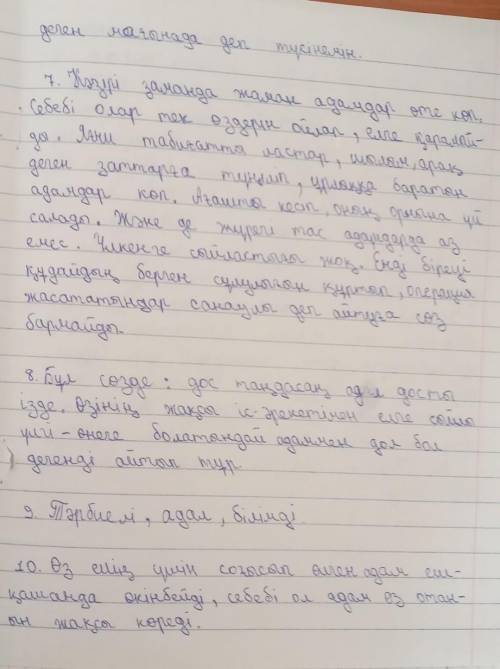 деген мағынада деп түсінемін.
7. Қазіргі заманда жаман адамдар өте көп.
Себебі олар тек өздерін ойлар, елге қарамай-
ды. Яғни табиғатты ластар, шылым, арақ
деген заттарға тұнып, ұрлыққа баратын
адамдар көп. Ағашты кесіп, оның орнына үй
салады. Және де жүрегі тас адамдарда аз
емес. Үлкенге сыйластығы жоқ. Енді біреуі
құдайдың берген сұлулығын құртып, операция
жасататындар санаулы деп айтуға сөз
бармайды.
8. Бұл сөзде: дос таңдасаң адал досты
ізде. Өзінің жақсы іс-әрекетінен елге сыйлы
үлгі-өнеге болатындай адаммен дол бол
дегенді айтып тұр
9. Тәрбиелі, адал, білімді
10. Өз елің үшін соғысып өлген адам еш-
қашанда өкінбейді, себебі ол адам өз отан-
ын жақсы көреді.